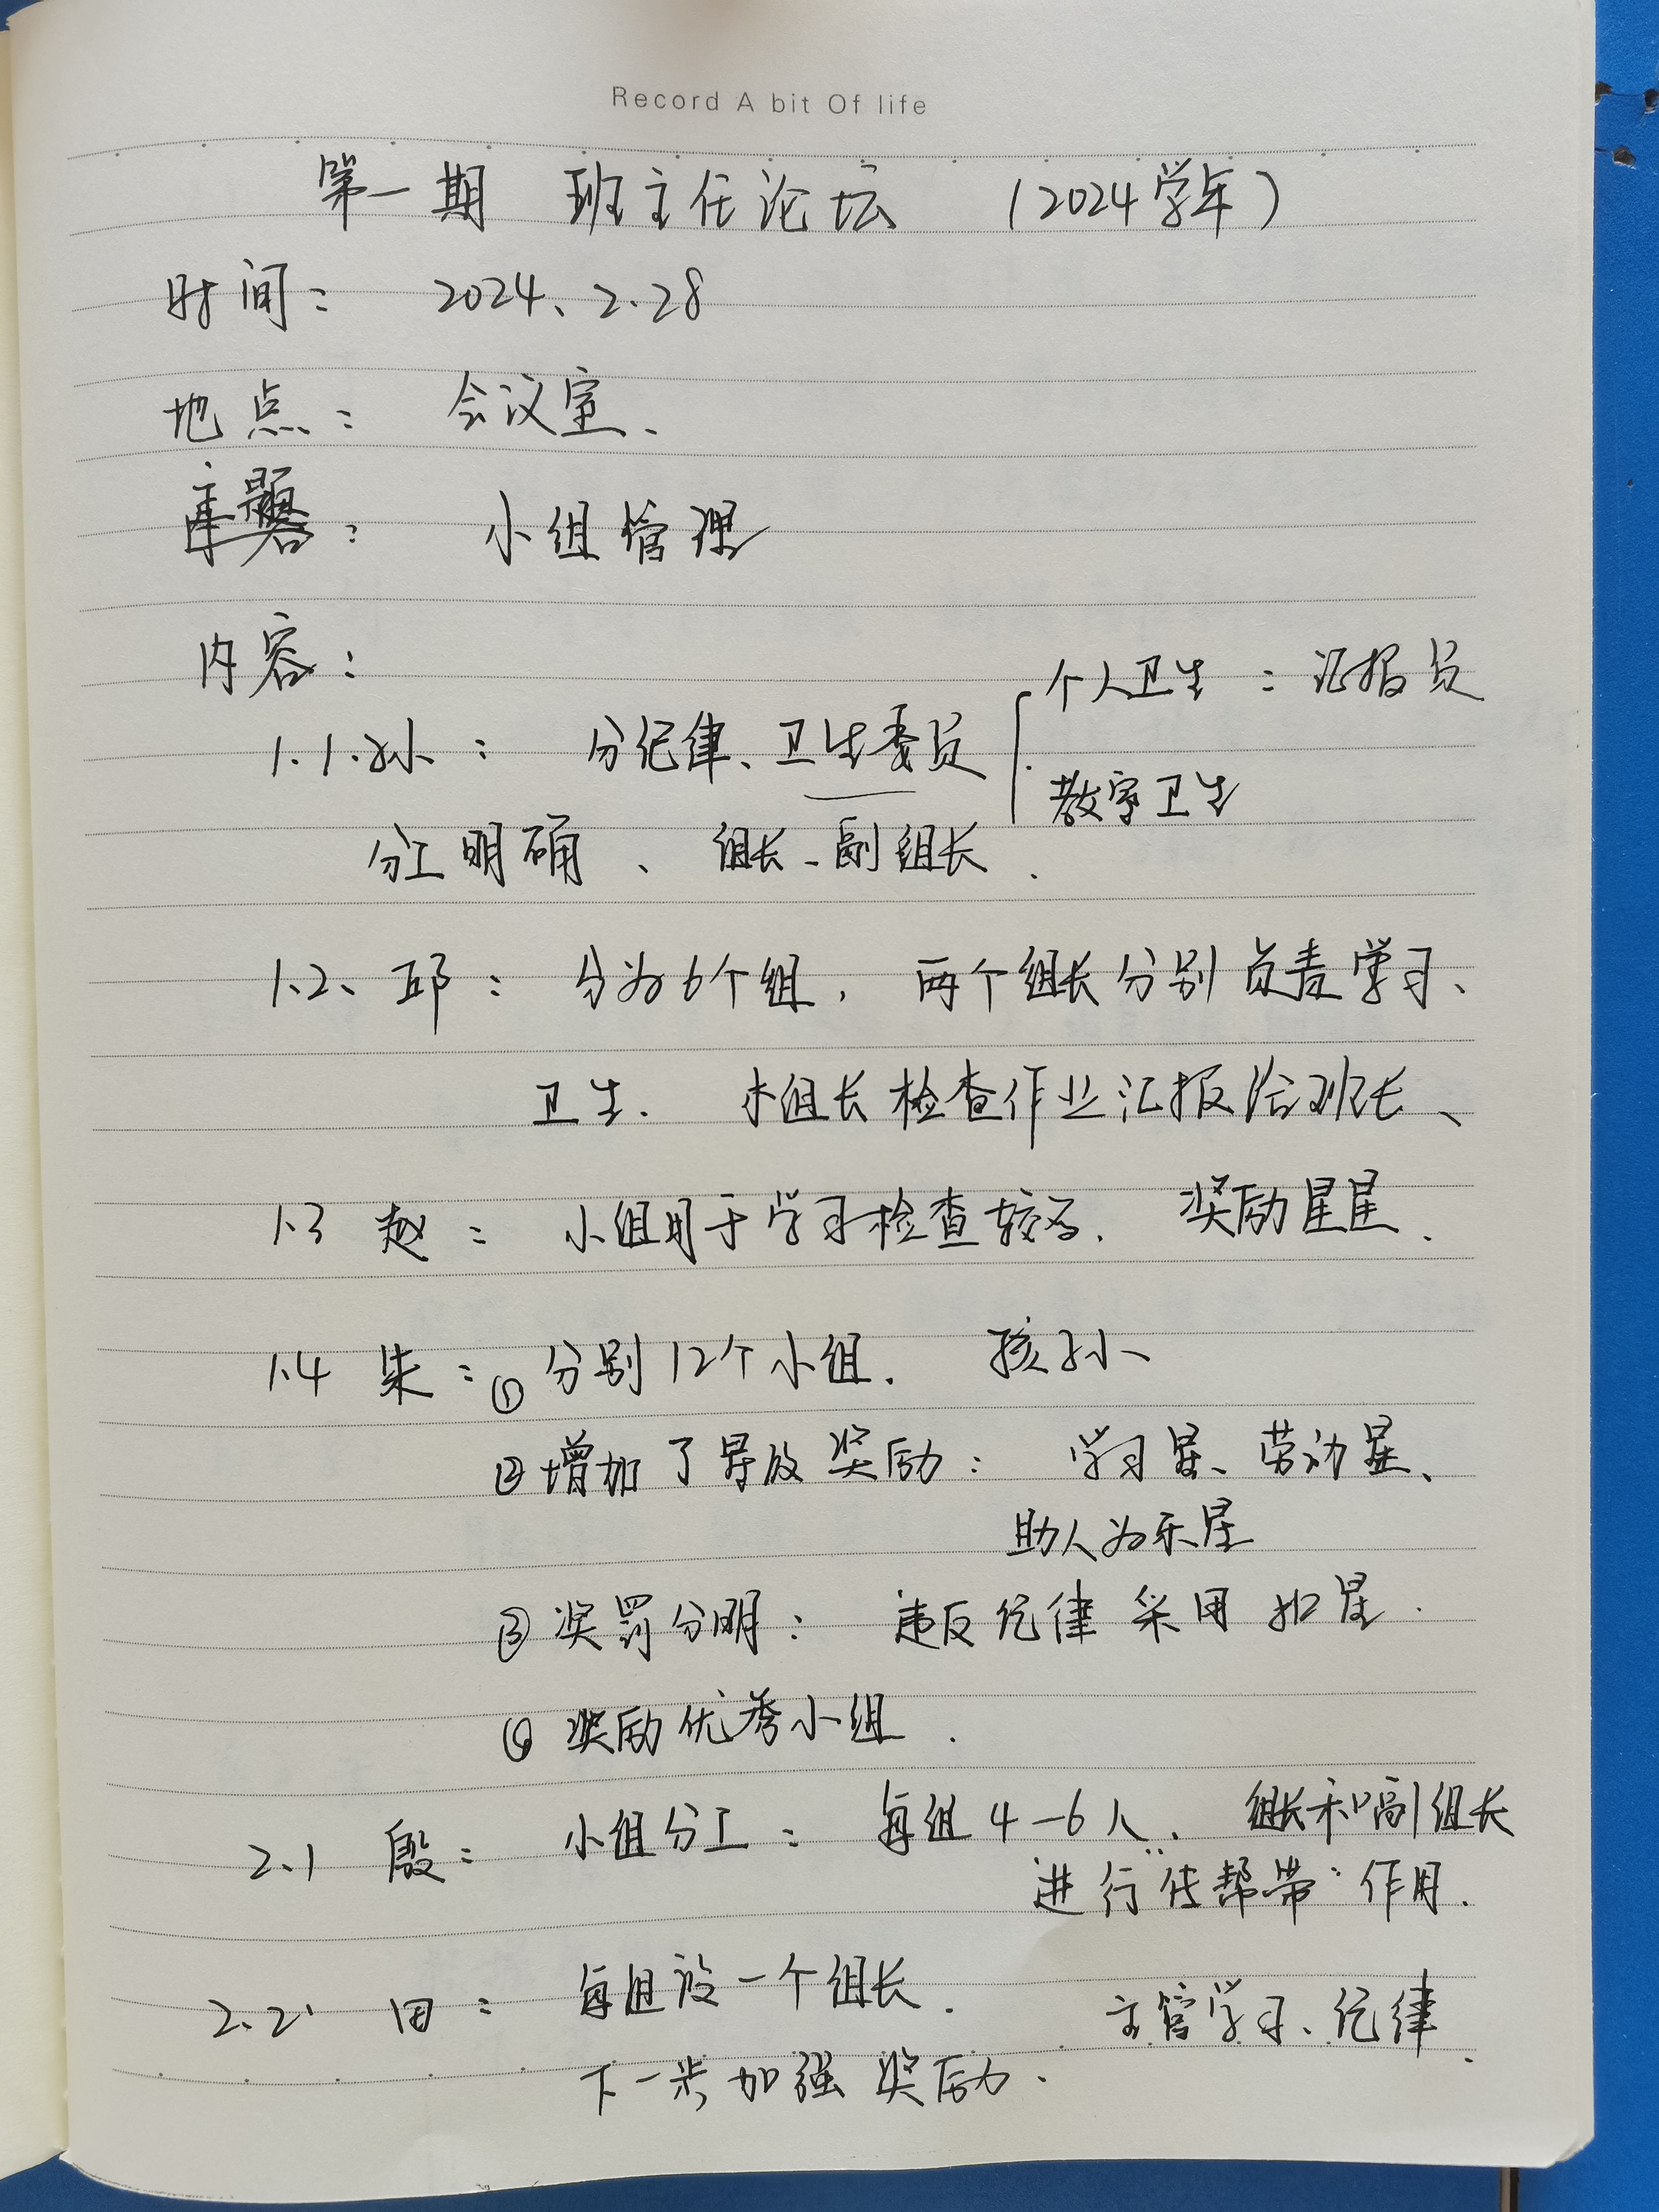 Record A bit Of life
第一期 班主任论坛 (2024学年)
时间: 2024、2.28
地点: 会议室、
主题: 小组管理
内容:
个人卫生: 汇报员
1.1.孙: 分纪律、卫生委员
教室卫生
分工明确、组长、副组长.
1.2、邱: 分为6个组, 两个组长分别负责学习、
卫生. 小组长检查作业汇报给班长、
1.3 赵: 小组用于学习检查较多. 奖励星星.
1.4 朱: ①分别12个小组.
②增加了导放奖励: 学习星、劳动星、
助人为乐星
③奖罚分明: 违反纪律采用扣星.
④奖励优秀小组.
2.1 殷: 小组分工: 每组4-6人. 组长和副组长
进行“传帮带”作用.
2.2 田: 每组设一个组长. 主管学习、纪律.
下一步加强奖励.